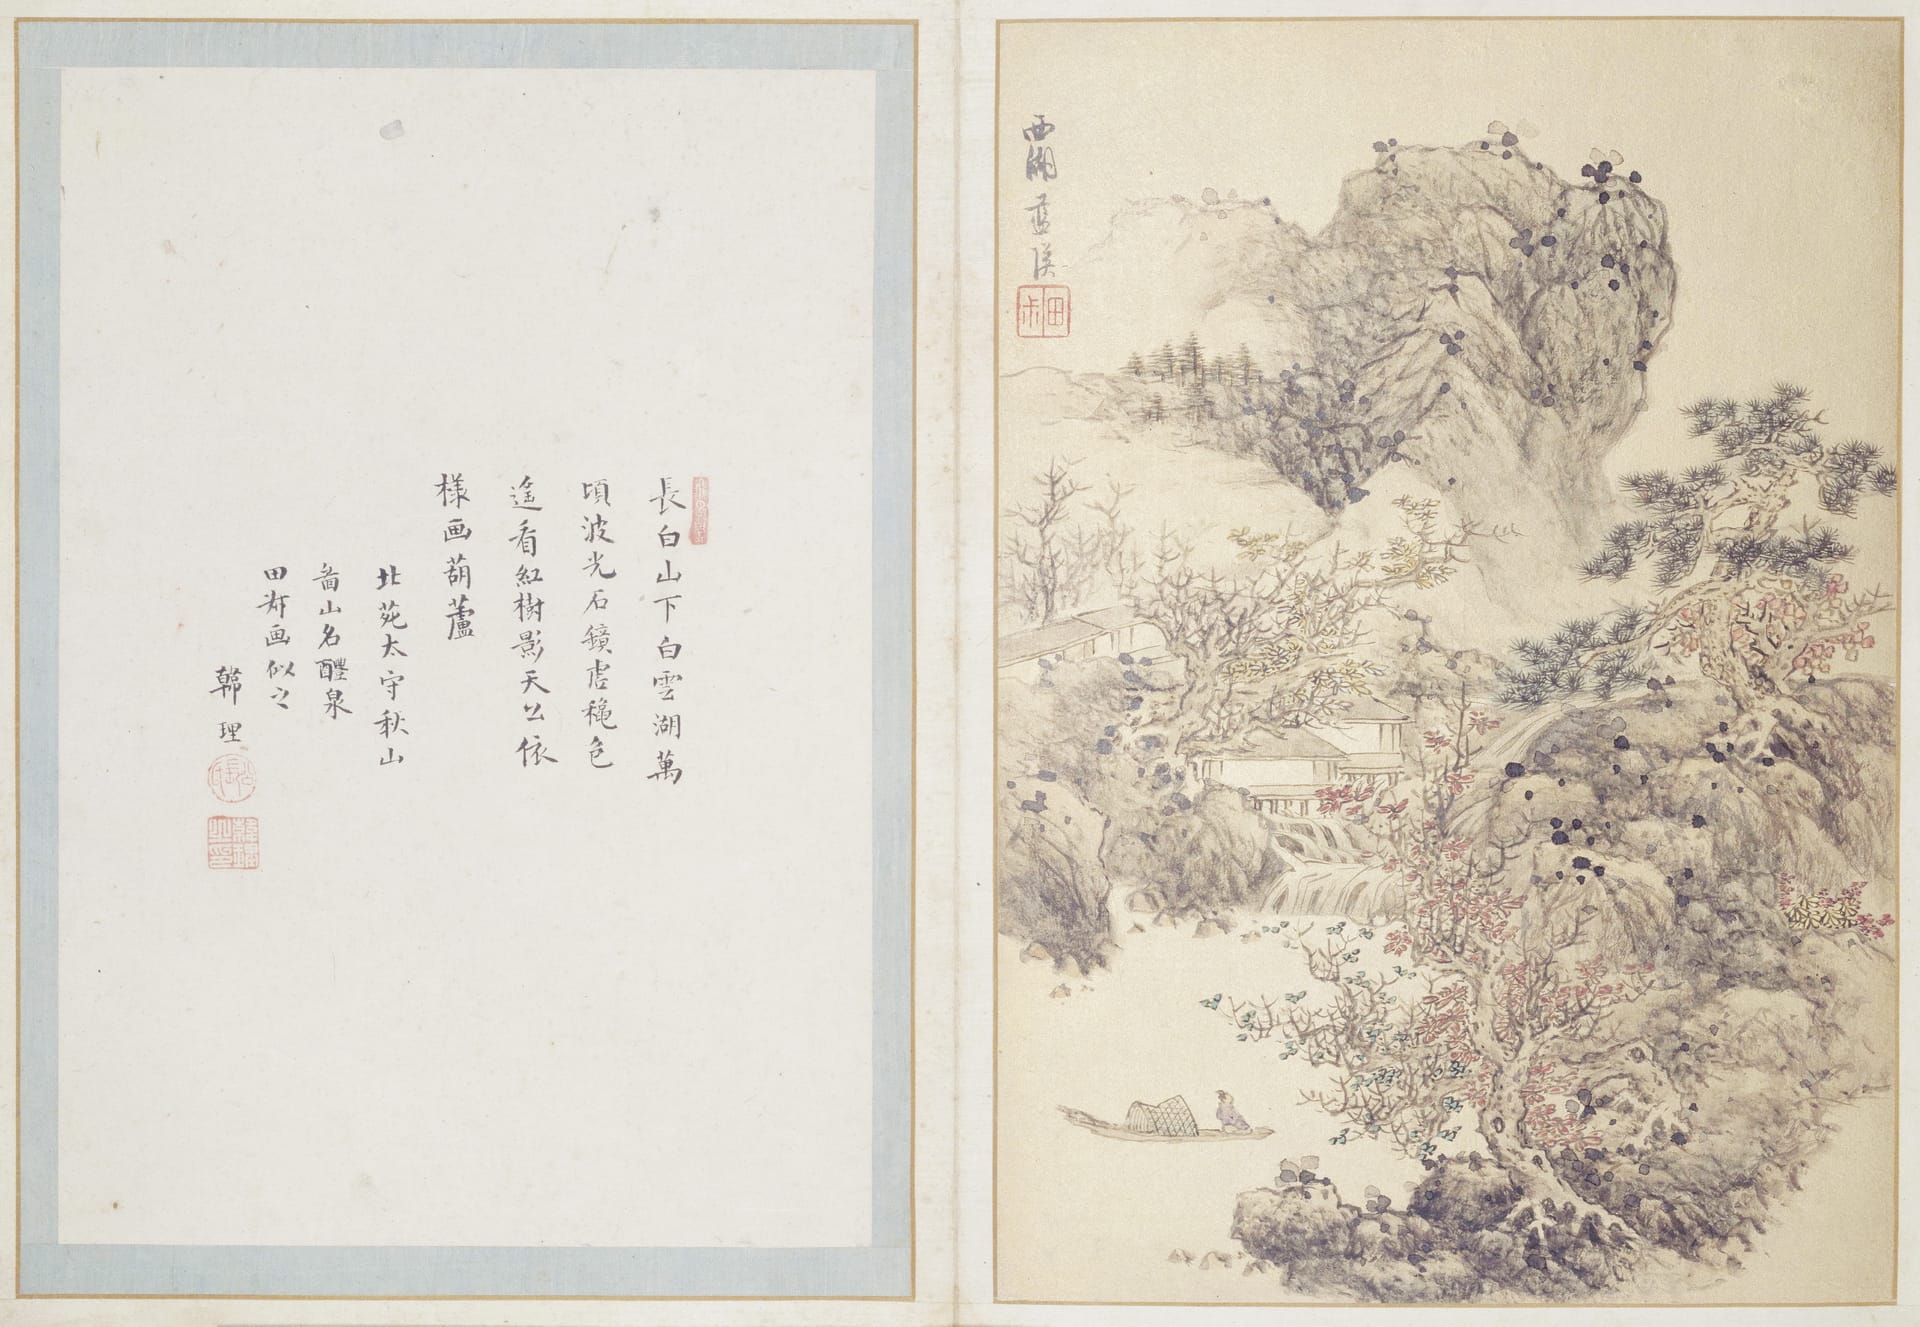 長白山下白雲湖萬
頃波光石鏡虛穐色
遙看紅樹影天公依
樣画葫蘆
北苑太守秋山
啚山名醴泉
田叔画似之
韓理
西湖藍瑛
田叔